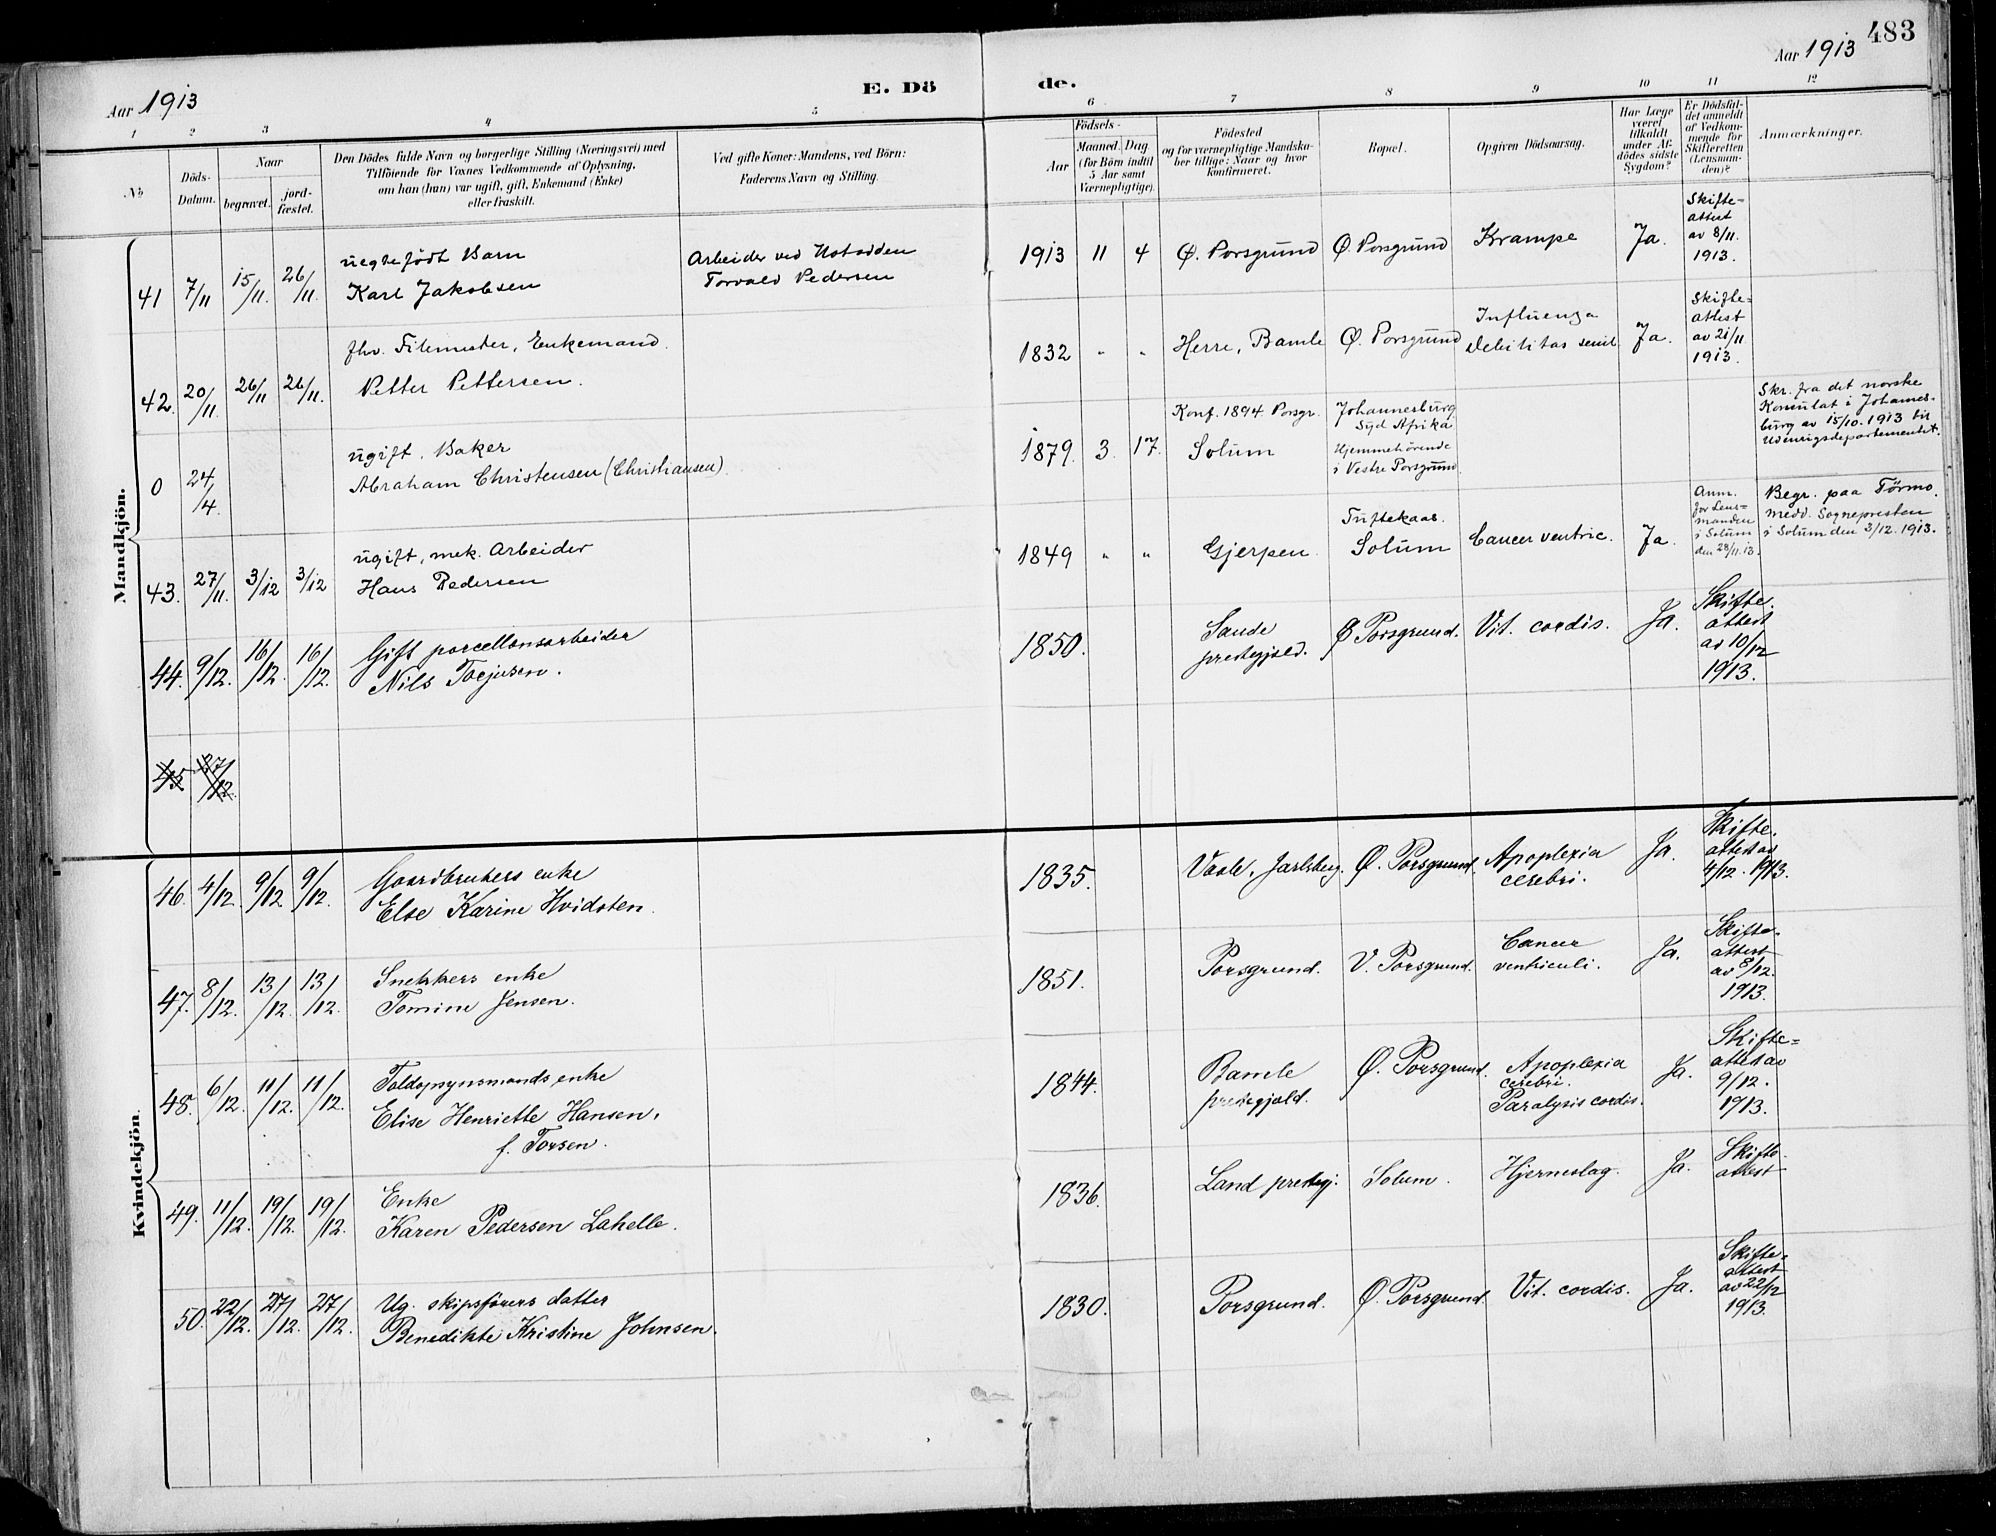 483
Aar 1913
E. Dö
de.
Aar 1913
1 2 3 4 5 6 7 8 9 10 11 12
No
Döds-Datum.
Naar
begravet.
jord-fæstet.
Den Dödes fulde Navn og borgerlige Stilling (Næringsvei) med
Tilföiende for Voxnes Vedkommende af Oplysning,
om han (hun) var ugift, gift, Enkemand (Enke)
eller fraskilt.
Ved gifte Koner: Mandens, ved Börn:
Faderens Navn og Stilling.
Födsels-
Aar
Maaned. Dag
(for Börn indtil
5 Aar samt
Værnepligtige).
Födested
og for værnepligtige Mandska-
ber tillige: Naar og hvor
konfirmeret.
Bopæl.
Opgiven Dödsaarsag.
Har Læge
været
tilkaldt
under Af-
dödes sidste
Sygdom?
Er Dödsfal-
det anmeldt
af Vedkom-
mende for
Skifteretten
(Lensman-
den)?
Anmærkninger.
Mandkjön.
41 7/11 15/11. 26/11.
uegtefödt Barn
Karl Jakobsen
Arbeider ved Notodden
Torvald Pedersen
1913 11 4
Ø. Porsgrund
Ø. Porsgrund
Krampe
Ja.
Skifte-
attest
av 8/11.
1913.
42. 20/11. 26/11 26/11.
fhv. Filemester, Enkemand.
Petter Pettersen.
1832 " "
Herre, Bamle
Ø. Porsgrund
Influenza
Debilitas senil.
Ja.
Skifte=
attest
av 21/11
1913.
0 24/4.
ugift, Baker
Abraham Christensen (Christiansen)
1879. 3. 17.
Konf. 1894. Porsgr.
Solum
Johannesburg
Syd Afrika
Hjemmehörende
i Vestre Porsgrund
Skr. fra det norske
Konsulat i Johannes-
burg av 15/10. 1913 til
Udenrigsdepartementet.
43. 27/11. 3/12 3/12
ugift, mek. Arbeider
Hans Pedersen
1849 " "
Gjerpen.
Tuftekaas.
Solum
Cancer ventric.
Ja.
Anm.
for Lens-
manden
i Solum
den 28/11.13.
Begr. paa Törmo.
medd. Sognepresten
i Solum den 3/12. 1913.
44. 9/12. 16/12. 16/12.
Gift porcellænsarbeider
Nils Torjusen.
1850.
Sande
prestegjeld.
Ø Porsgrund.
Vit. cordis.
Ja.
Skifte.
attest
av 10/12
1913.
45 27/12.
Kvindekjön.
46. 4/12. 9/12 9/12.
Gaardbrukers enke
Else Karine Hvidsten.
1835.
Vaale, Jarlsberg.
Ø. Porsgrund.
Apoplexia
cerebri.
Ja.
Skifte.
attest av
4/12. 1913.
47. 8/12. 13/12. 13/12.
Snekkers enke
Tomine Jensen.
1851.
Porsgrund.
V. Porsgrund.
Cancer
ventriculi.
Ja.
Skifte-
attest
av 8/12.
1913.
48. 6/12. 11/12. 11/12.
Toldopsynsmands enke
Elise Henriette Hansen,
f. Torsen.
1844.
Bamle
prestegjeld.
Ø. Porsgrund.
Apoplexia
cerebri.
Paralysis cordis.
Ja.
Skifte=
attest av
9/12.
1913.
49. 11/12. 19/12. 19/12.
Enke
Karen Pedersen Lahelle.
1836.
Land prestegj.
Solum.
Hjerneslag.
Ja.
Skifte-
attest
50. 22/12. 27/12. 27/12.
Ug. skipsförers datter
Benedikte Kristine Johnsen.
1830.
Porsgrund.
Ø. Porsgrund.
Vit. cordis.
Ja.
Skifte-
attest
av 22/12
1913.